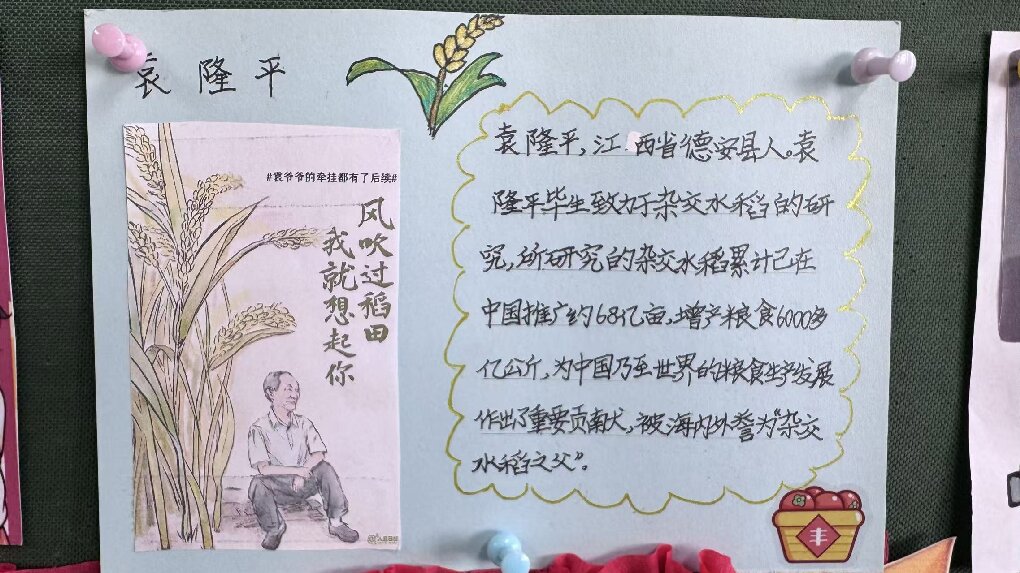 袁隆平
#袁爷爷的牵挂都有了后续#
风吹过稻田
我就想起你
袁隆平,江西省德安县人。袁
隆平毕生致力于杂交水稻的研
究,所研究的杂交水稻累计已在
中国推广约68亿亩,增产粮食6000多
亿公斤,为中国乃至世界的粮食生产发展
作出了重要贡献,被海内外誉为“杂交
水稻之父”。
丰